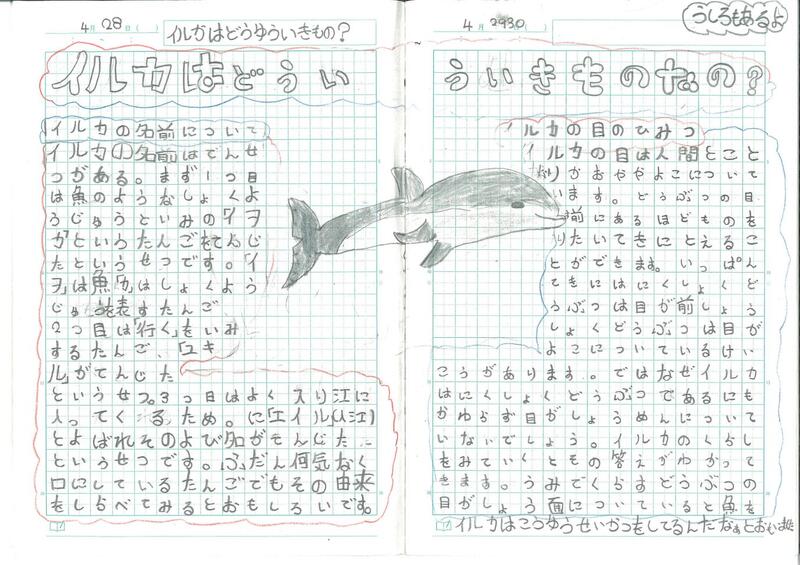 4月28日( )
イルカはどうゆういきもの？
イルカはどうい
イルカの名前について
イルカの名前はでんせ
つがある。まず一つ目
は魚のようなしょくよ
うじゅうといみのイヲ
カ」というたんごをてんじ
たというせつです。「イ
ヲ」は魚「カ」はしょくよう
じゅうを表すたんご
2つ目は「行く」をいみ
するたんご、「ユキ
ル」がてんじた
というせつ。3つ目はよく入り江に
入ってくるため。に「エイル」(入江)
とよばれそのよび名がてんじた
というせつです。ふだん何気なく
口にしているたんごでもその由来
をしらべてみるとおもしろいです。
4月2930
うしろもあるよ
ういきものなの？
イルカの目のひみつ
イルカの目は人間とこと
なりかおややよこについて
います。どうぶつの目
前にあるほどものを
りたいてきにとえるこ
とができます。いっぱん
てきにはにくしょくど
うぶつは目が前しょう
しょくどうぶつは目が
よこについているけい
こうがあります。ではなぜイルカ
はにくしょくどうぶつであるにも
かかわらず目がしょうめんについて
いないでしょう。イルカのくらし
をみていくとその答えがわかって
きます。うみでくらすどうぶつの
目がしょう面についていると魚を
イルカはこうゆうせいかつをしてるんだなぁとおもいました